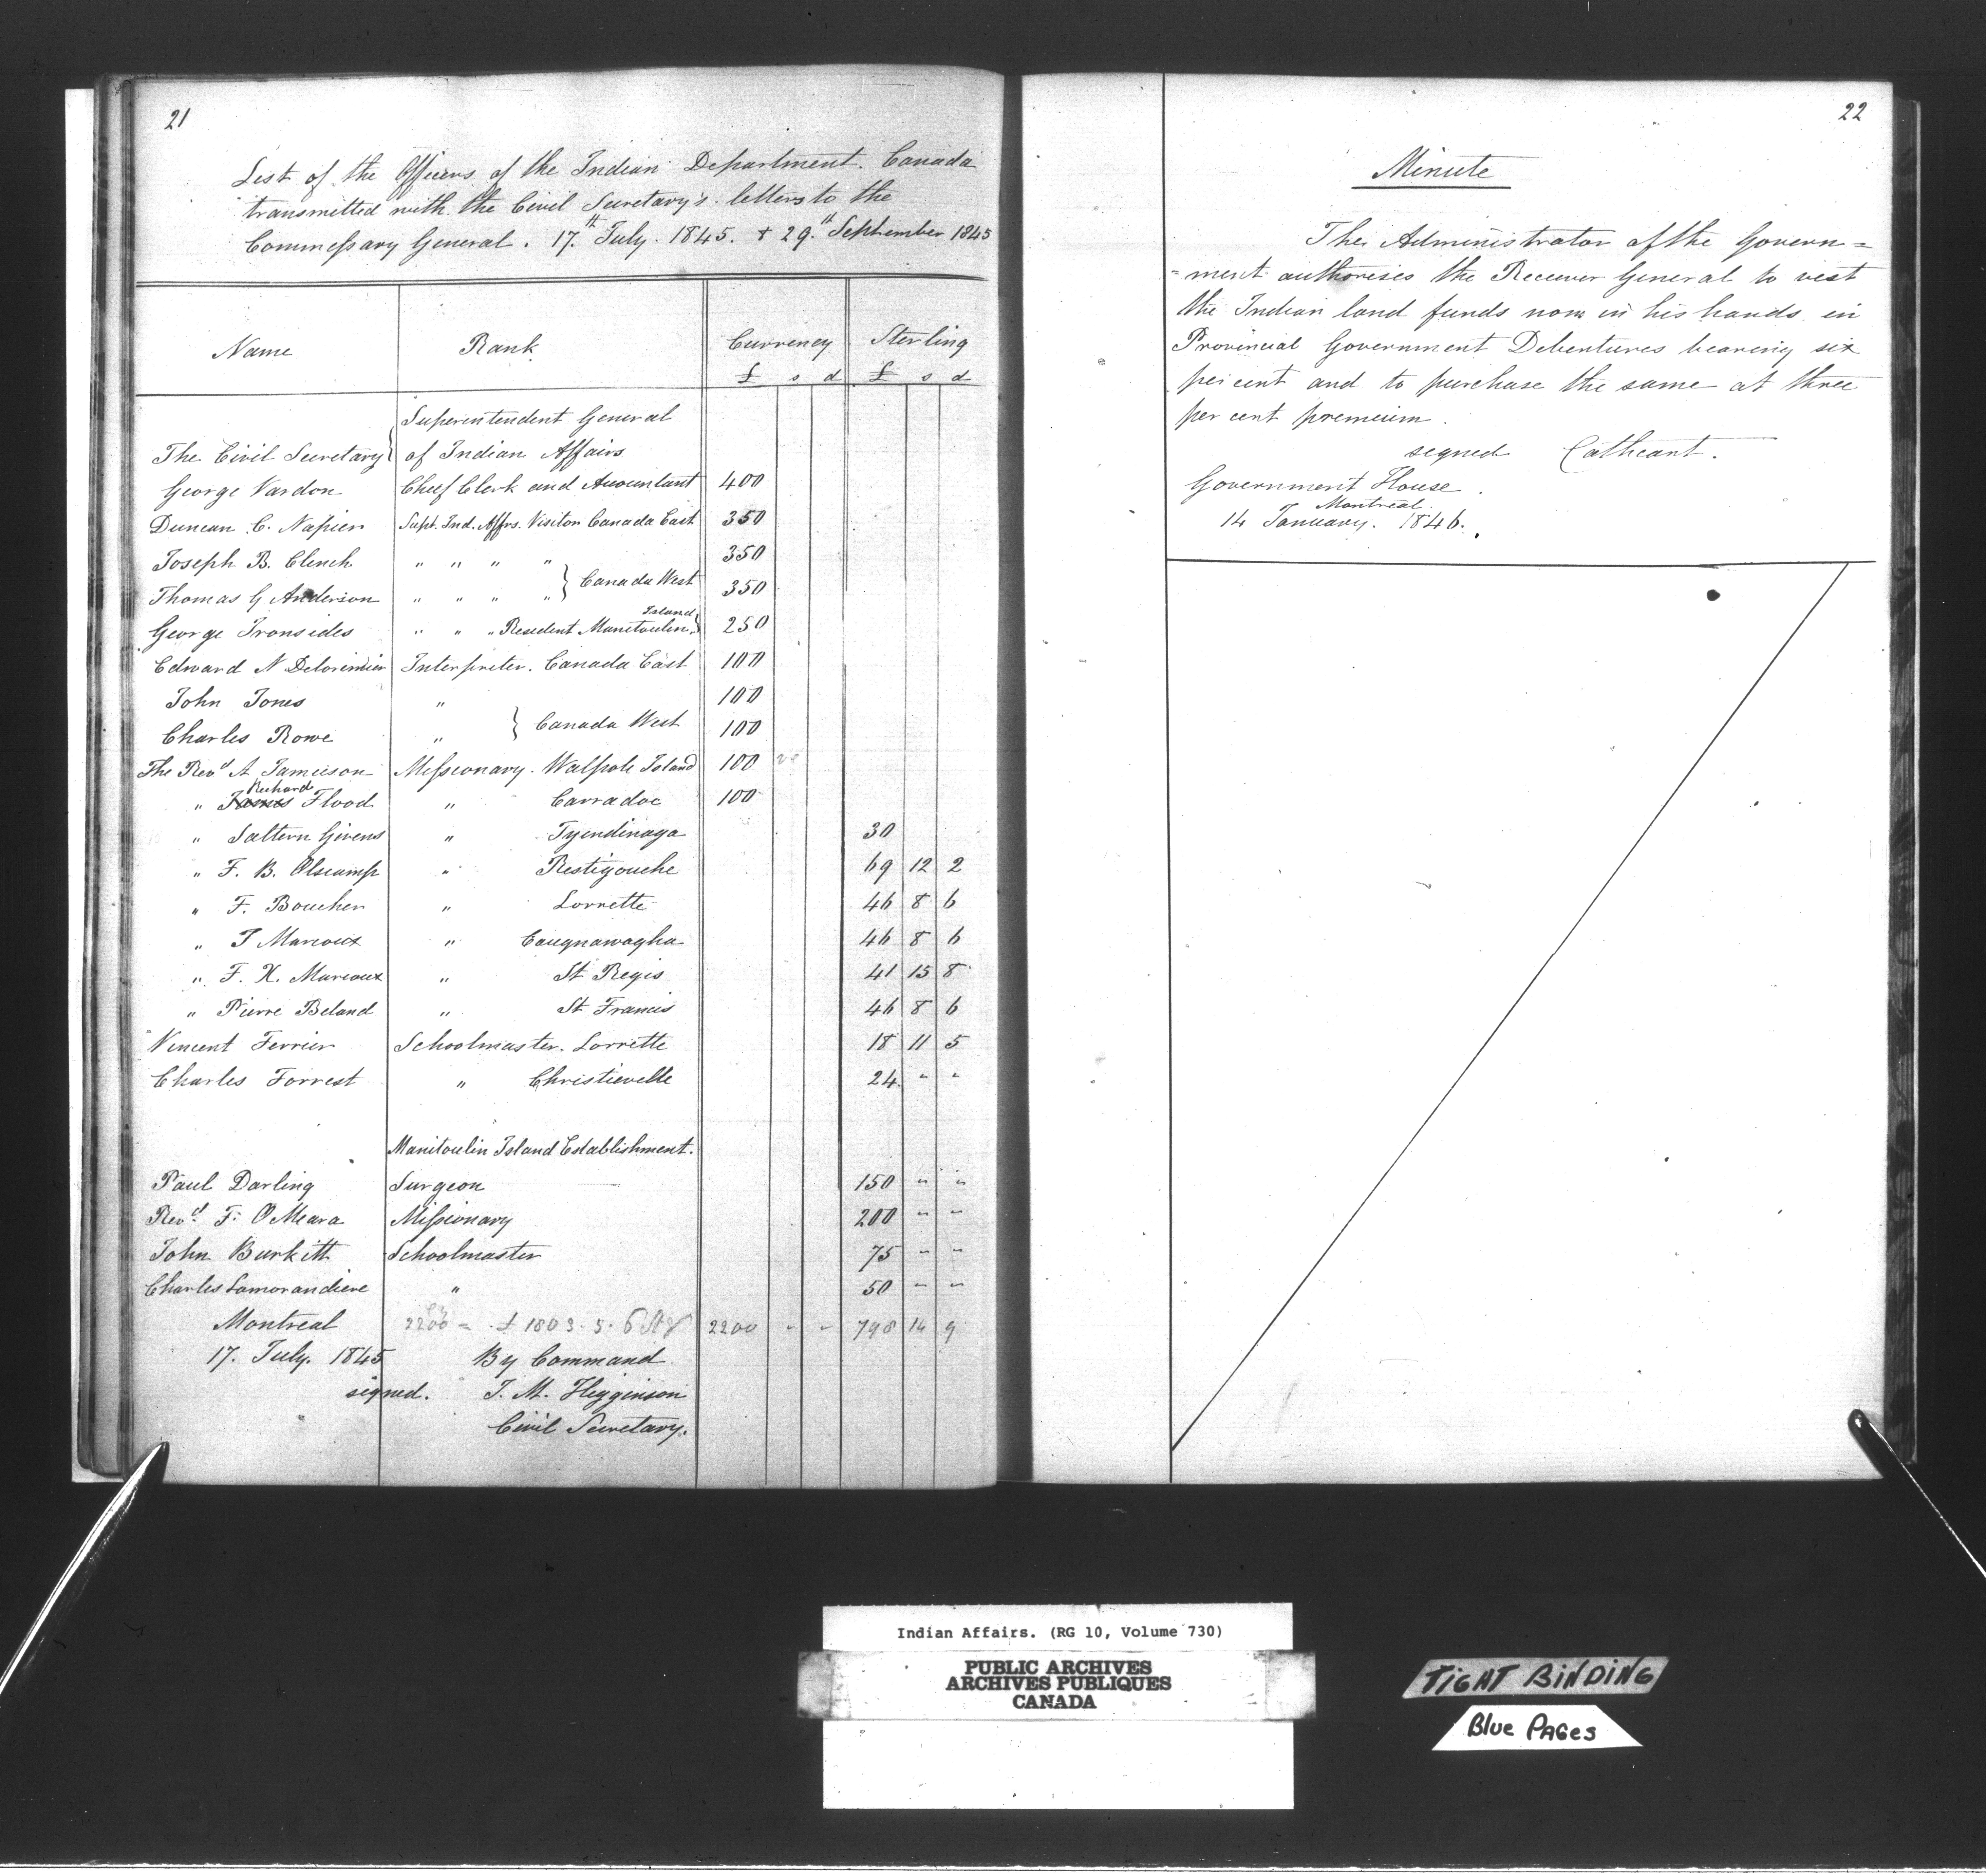 21
List of the Officers of the Indian Department. Canada
transmitted with the Civil Secretary's letters to the
Commissary General. 17th July. 1845. + 29th September 1845
Name Rank Currency Sterling
£ s d £ s d
Superintendent General
The Civil Secretary } of Indian Affairs
George Vardon Chief Clerk and Accountant 400
Duncan C. Napier Supt. Ind. Affrs. Visitor Canada East 350
Joseph B. Clench " " " " 350
Thomas G Anderson " " " " } Canada West 350
George Ironsides " " " Resident Manitoulin Island } 250
Edward N Delorimier Interpreter. Canada East 100
John Jones " 100
Charles Rowe " } Canada West 100
The Revd A Jamieson Missionary. Walpole Island 100
" James Richard Flood " Carradoc 100
" Saltern Givens " Tyendinaga 30
" F. B. Olscamp " Restigouche 69 12 2
" F. Boucher " Lorrette 46 8 6
" J Marcoux " Caugnawagha 46 8 6
" F. X. Marcoux " St Regis 41 15 8
" Pierre Beland " St Francis 46 8 6
Vincent Ferrier Schoolmaster. Lorrette 18 11 5
Charles Forrest " Christieville 24 " "
Manitoulin Island Establishment.
Paul Darling Surgeon 150 " "
Revd. F. O Meara Missionary 200 " "
John Burkitt Schoolmaster 75 " "
Charles Lamorandiere " 50 " "
Montreal 2200 = £ 1803. 5. 6 2200 " " 798 14 9
17. July. 1845 By Command
signed. J. M. Higginson
Civil Secretary.
22
Minute
The Administrator of the Govern=
=ment authorises the Receiver General to vest
the Indian land funds now in his hands in
Provincial Government Debentures bearing six
per cent and to purchase the same at three
per cent premium.
signed Cathcart.
Government House
Montreal.
14 January. 1846.
Indian Affairs. (RG 10, Volume 730)
PUBLIC ARCHIVES
ARCHIVES PUBLIQUES
CANADA
TIGHT BINDING
Blue PAGes